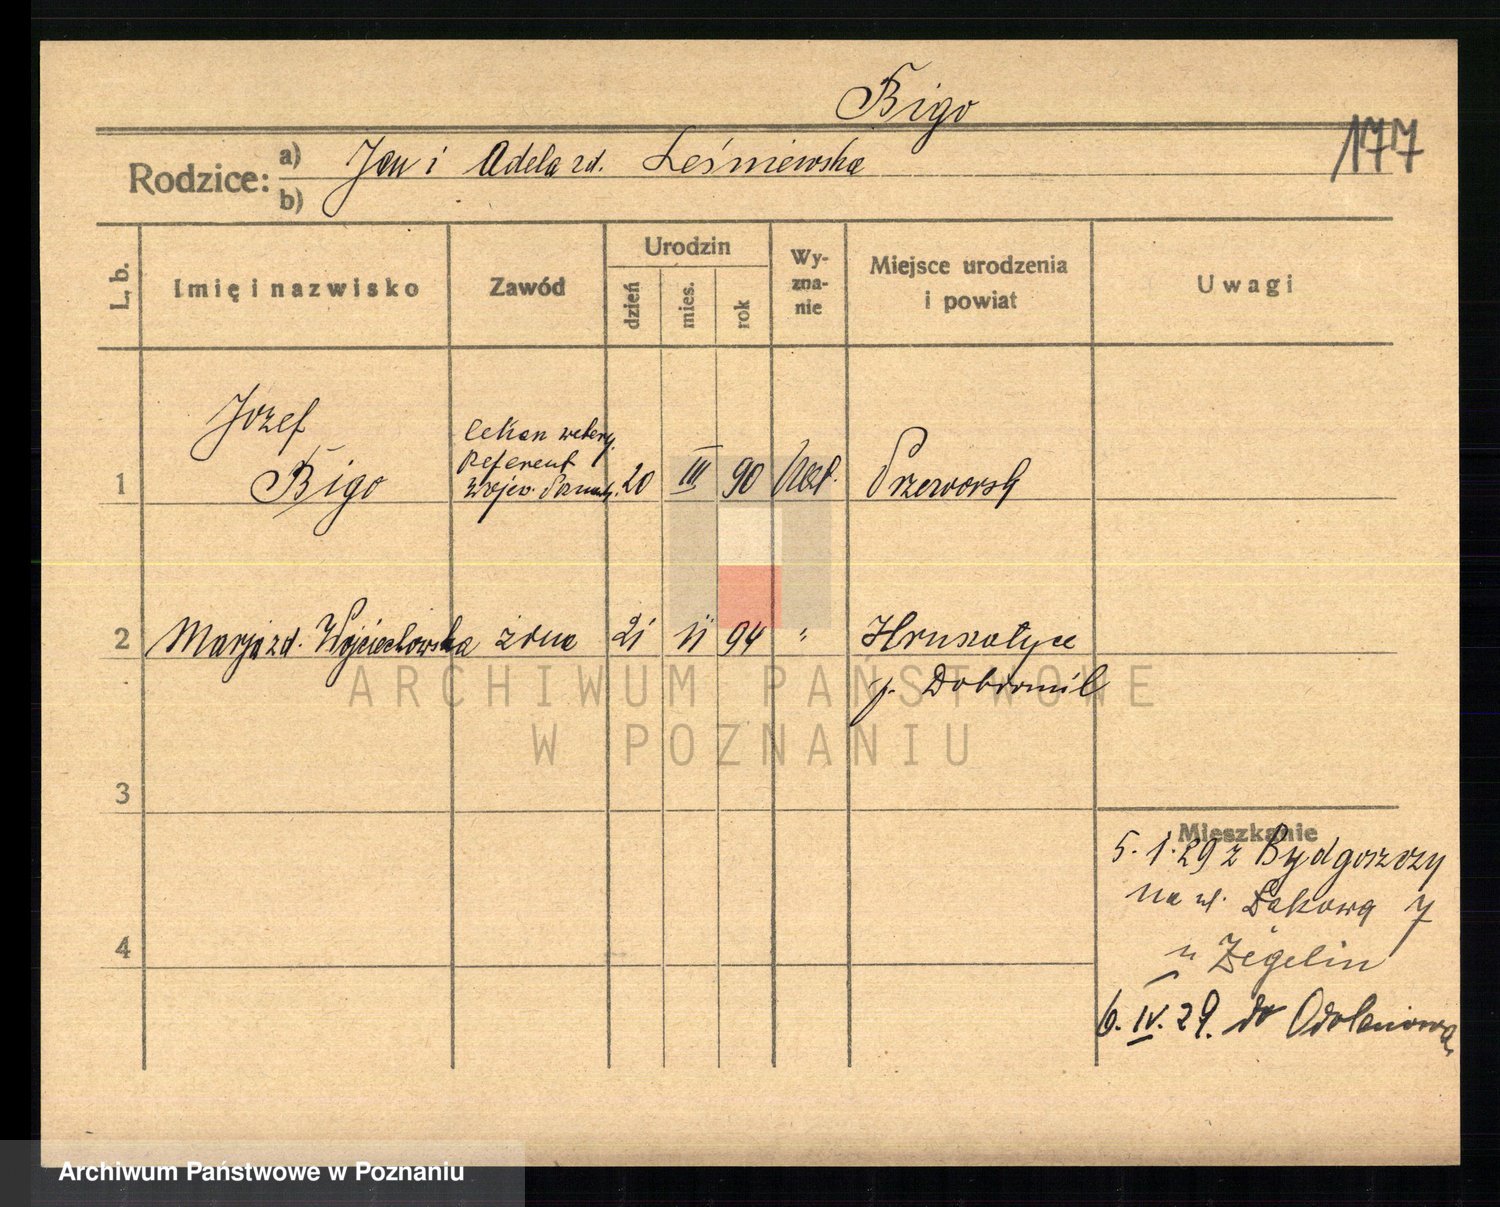 Bigo
177
Rodzice: a) Jan i Adela zd. Leśniewska
b)
L, b.
Imię i nazwisko
Zawód
Urodzin
dzień
mies.
rok
Wy-
zna-
nie
Miejsce urodzenia
i powiat
Uwagi
Józef
lekarz weter.
Referent
1 Bigo Wojew. 20 III 90 Przeworsk
2 Marja zd. Wojciechowska żona 21 VI 94 " Hruszatyce
p. Dobromil
ARCHIWUM PAŃSTWOWE
W POZNANIU
3
Mieszkanie
5.1.29 z Bydgoszczy
na ul. Łąkową 7
4
u Zegelin
6. IV. 29. do Odolanowa
Archiwum Państwowe w Poznaniu